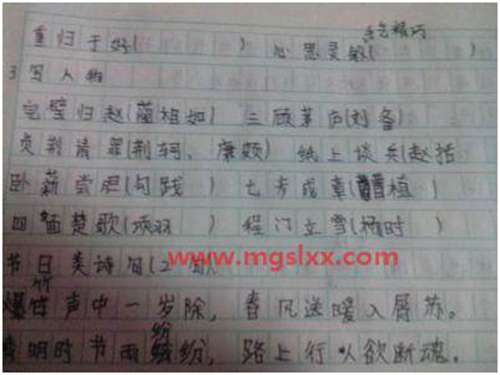 重归于好(        )  心思灵敏(
3写人物
完璧归赵(蔺相如)  三顾茅庐(刘备)
负荆请罪(荆轲、廉颇)  纸上谈兵(赵括
卧薪尝胆(勾践)  七步成章(曹植)
四面楚歌(项羽)  程门立雪(杨时)
www.mgslxx.com
节日美诗句(2句
爆竹声中一岁除，春风送暖入屠苏。
清明时节雨纷纷，路上行人欲断魂。